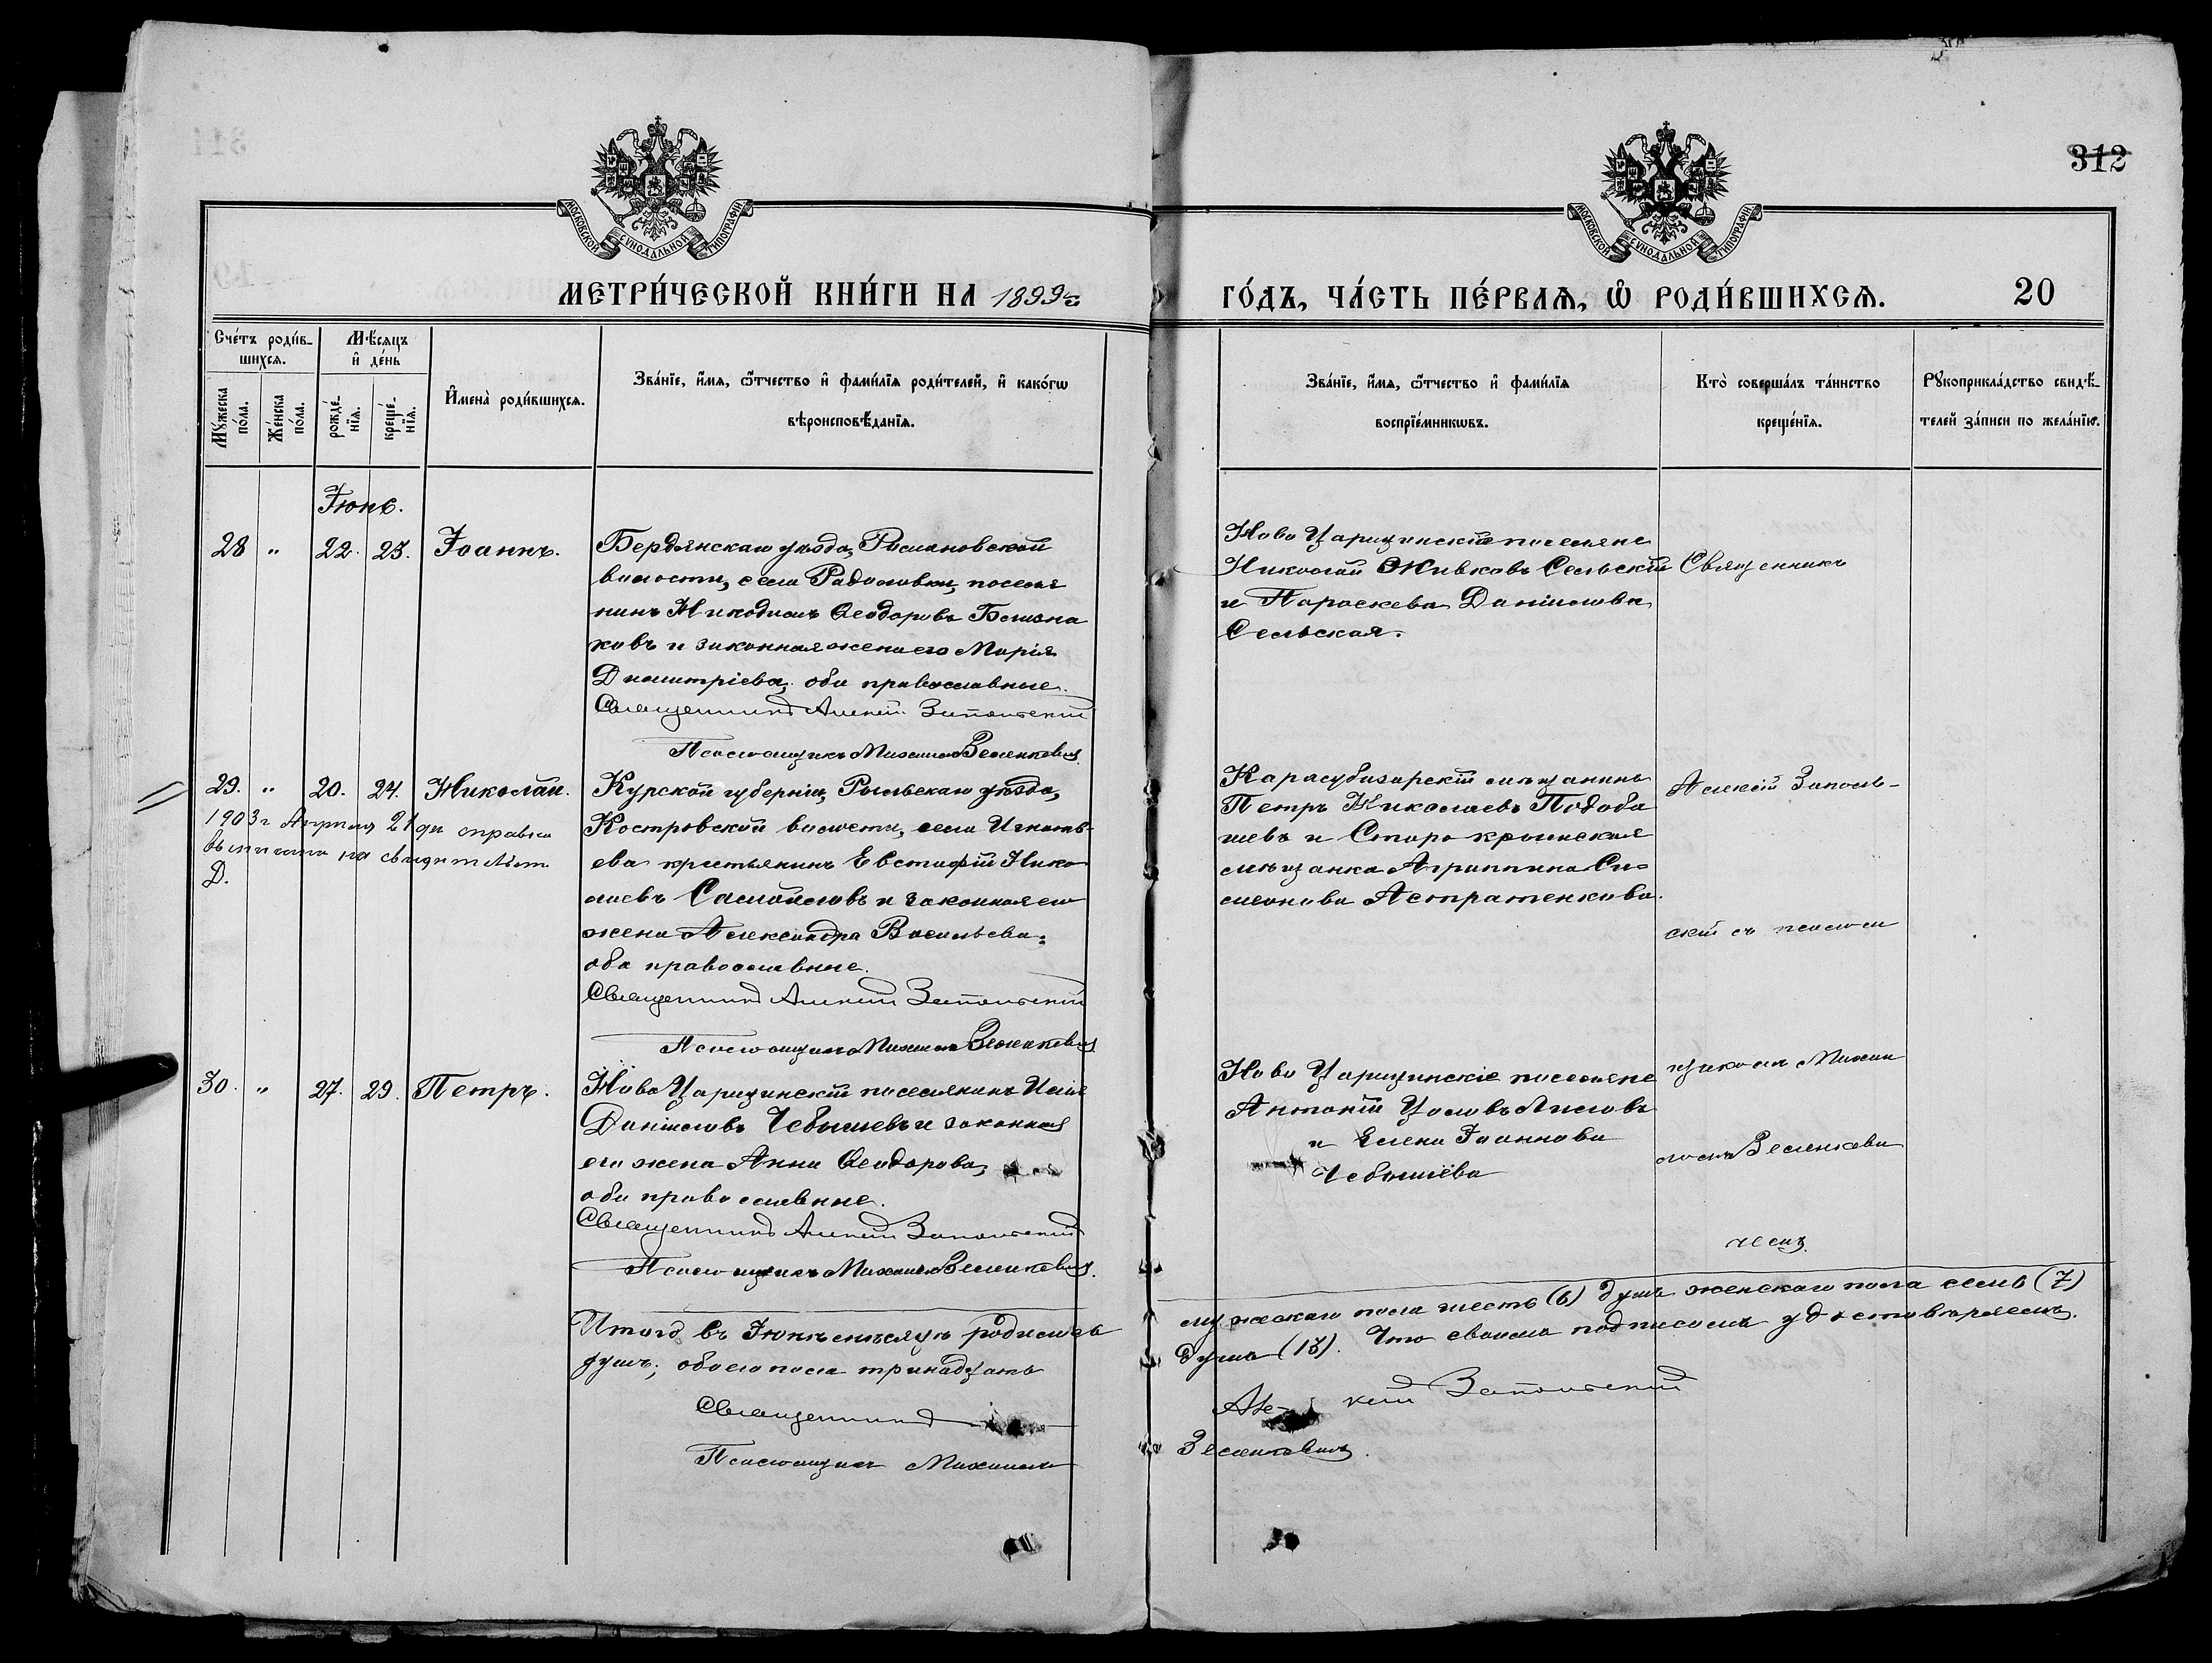 312
МОСКОВСКОЙ СѴНОДАЛЬНОЙ ТИПОГРАФІИ
МОСКОВСКОЙ СѴНОДАЛЬНОЙ ТИПОГРАФІИ
МЕТРИ́ЧЕСКОЙ КНИ́ГИ НА 1899 г.
ГО́ДЪ, ЧА́СТЬ ПЕ́РВАѦ, Ѡ҆ РОДИ́ВШИХСѦ.
20
Сче́тъ роди́в-
шихсѧ.
Мѣ́сѧцъ
и҆ де́нь
Мꙋ́жеска
по́ла.
Же́нска
по́ла.
рожде́-
нїѧ.
креще́-
нїѧ.
И҆мена̀ роди́вшихсѧ.
Зва́нїе, и҆́мѧ, ѻ҆́тчество и҆ фами́лїѧ роди́телей, и҆ како́гѡ
вѣроисповѣ́данїѧ.
Зва́нїе, и҆́мѧ, ѻ҆́тчество и҆ фами́лїѧ
воспрїе́мникѡвъ.
Кто̀ соверша́лъ та́инство
креще́нїѧ.
Рꙋкоприкла́дство свидѣ́-
телей за́писи по жела́нїю.
Іюнь.
28 " 22. 23. Іоаннъ.
Бердянскаго уѣзда, Романовской
волости, села Радоловки, поселя
нинъ Никодимъ Ѳеодоровъ Близна
ковъ и законная жена его Марія
Димитріева, оба православные.
Священникъ Алексій Запольскій
Псаломщикъ Михаилъ Зеленкевичъ.
Ново Царицинскіе поселяне
Николай Живковъ Сельскій
и Параскева Даніилова
Сельская.
Священникъ
29. " 20. 24. Николай.
1903 г. Апрѣля 21 дн справка
выписана на свидѣтельст
Д.
Курской губерніи, Рыльскаго уѣзда,
Костровской волости, села Игнать-
ева крестьянинъ Евстафій Нико
лаевъ Самойловъ и законная его
жена Александра Васильева;
оба православные.
Священникъ Алексій Запольскій
Псаломщикъ Михаилъ Зеленкевичъ
Карасубазарскій мѣщанинъ
Петръ Николаевъ Подоба
шевъ и Старо крымская
мѣщанка Агриппина Си-
меонова Астратенкова.
Алексій Заполь-
скій съ псалом
30. " 27. 29. Петръ.
Ново Царицинскій поселянинъ Илія
Даніиловъ Чебышевъ и законная
его жена Анна Ѳеодорова,
оба православные.
Священникъ Алексій Запольскій
Псаломщикъ Михаилъ Зеленкевичъ.
Ново Царицинскіе поселяне
Антоній
и Елена Іоаннова
Чебышева
щикомъ Михаи
ломъ Зеленкеви
чемъ.
Итого въ Іюнѣ мѣсяцѣ родилось
мужескаго пола шесть (6) душъ женскаго пола семь (7)
душъ; обоего пола тринадцать
душъ (13). Что своимъ подписомъ удостовѣряемъ.
Священникъ
Але- ксій Запольскій
Псаломщикъ Михаилъ
Зеленкевичъ.